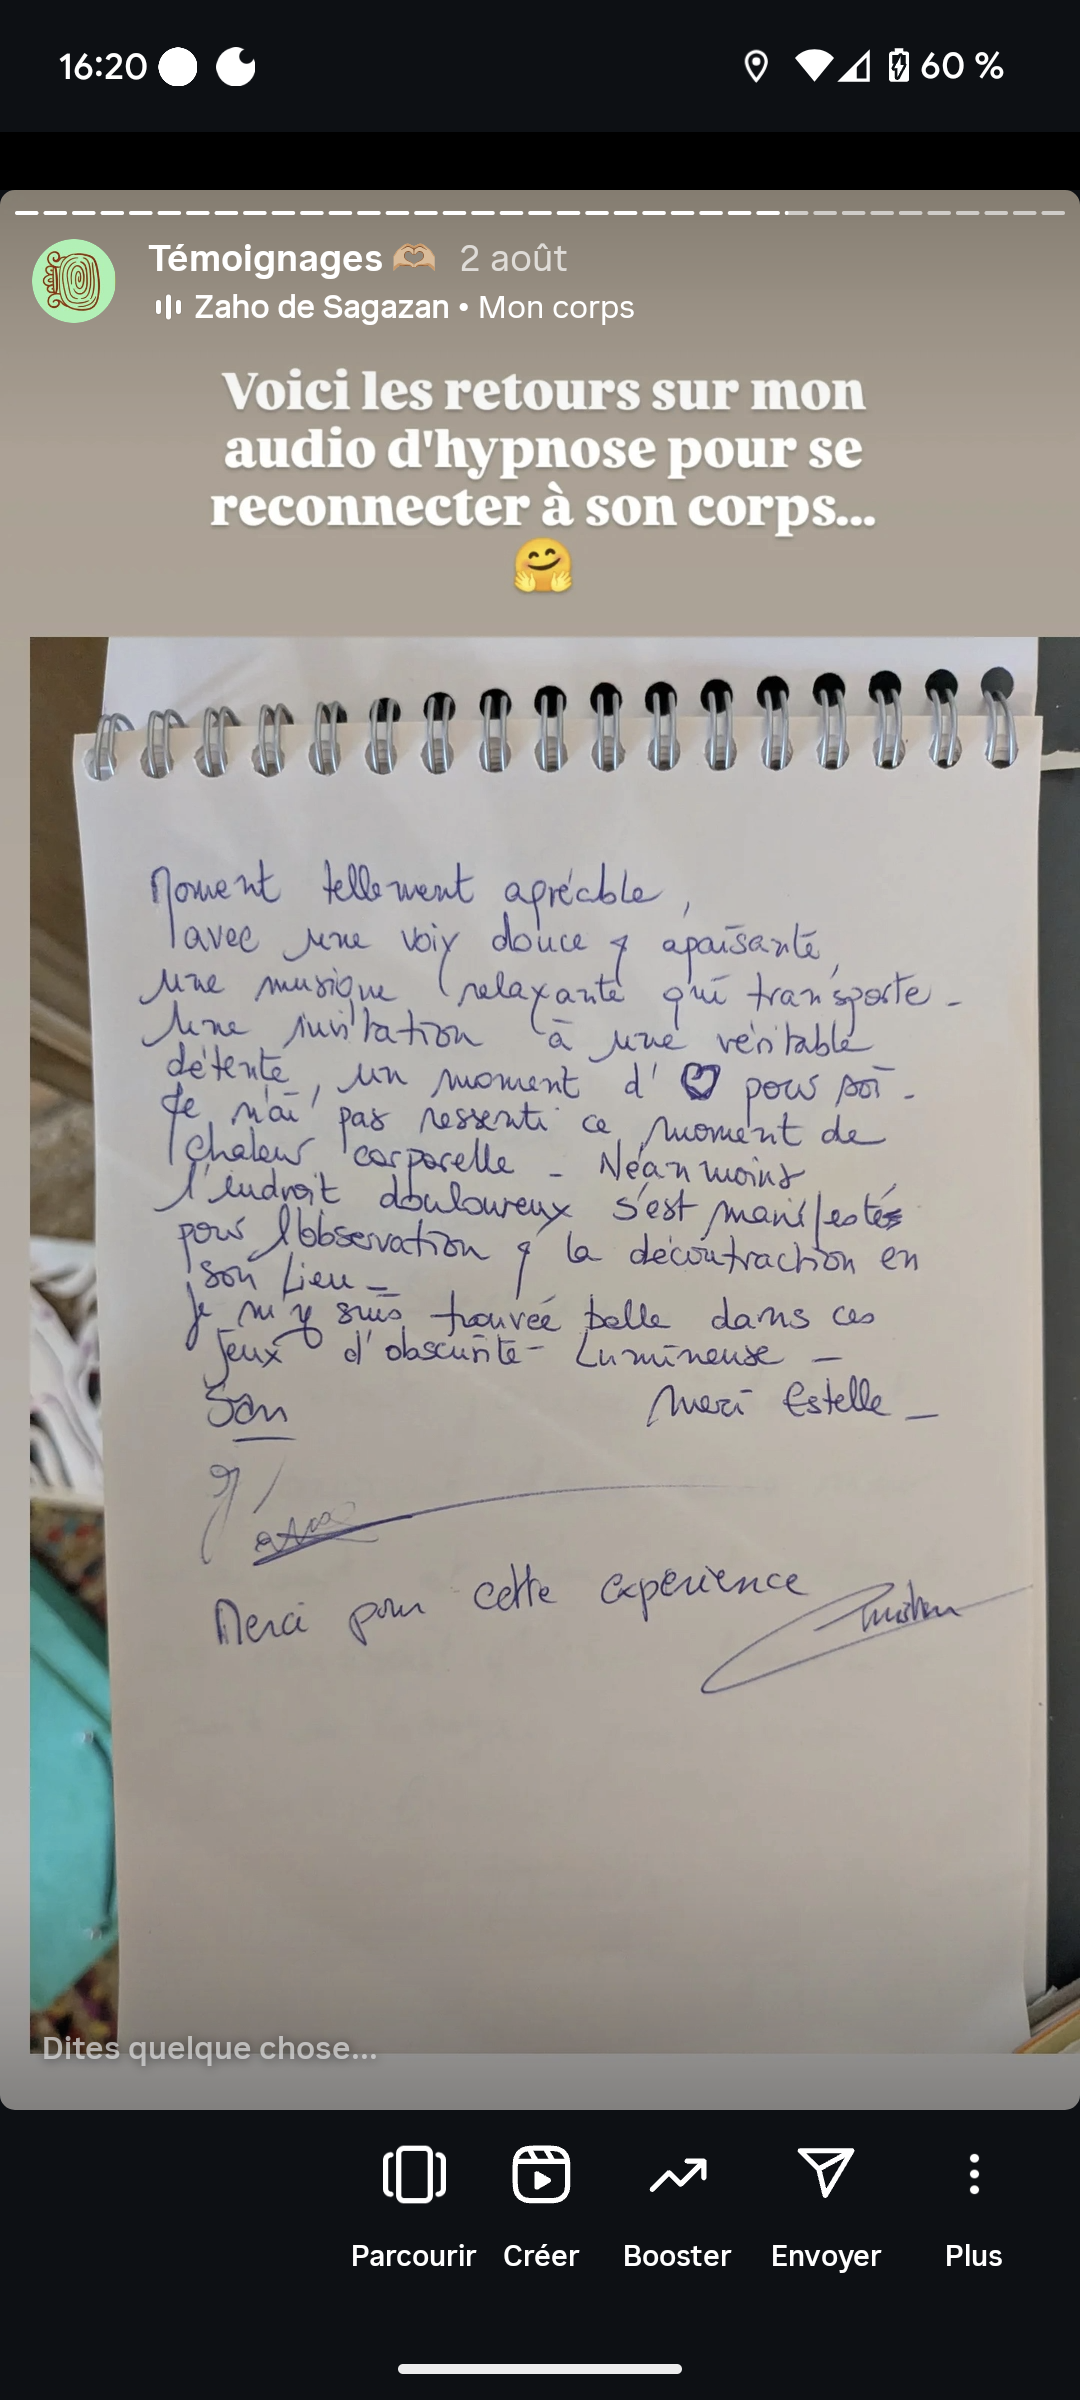 16:20
60 %
Témoignages 🫶🏼 2 août
Zaho de Sagazan • Mon corps
Voici les retours sur mon
audio d'hypnose pour se
reconnecter à son corps...
🤗
Moment tellement agréable,
avec une voix douce & apaisante,
une musique relaxante qui transporte -
Une invitation à une véritable
détente, un moment d'♡ pour soi -
Je n'ai pas ressenti ce moment de
chaleur corporelle - Néanmoins
l'endroit douloureux s'est manifesté
pour l'observation & la décontraction en
son lieu -
Je m'y suis trouvée belle dans ces
jeux d'obscurité - Lumineuse -
San Merci Estelle -
Merci pour cette expérience
Dites quelque chose...
Parcourir Créer Booster Envoyer Plus